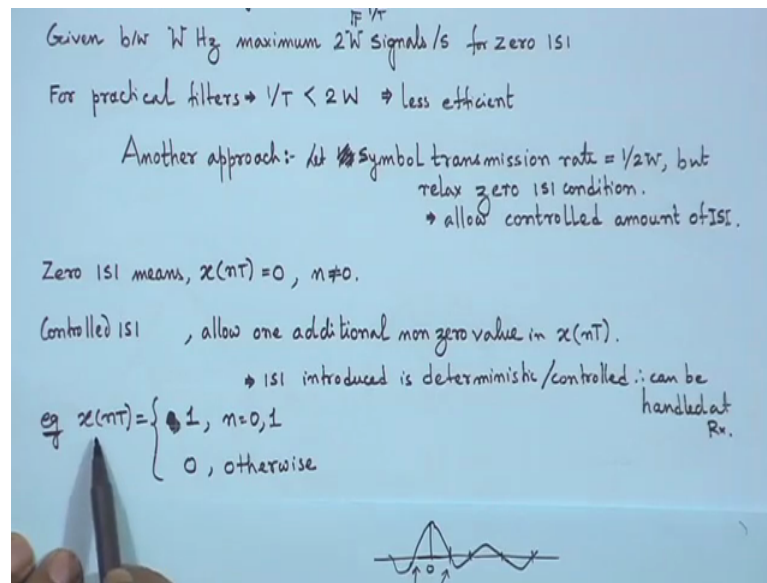 IF 1/T
Given b/w W Hz maximum 2W signals/s for zero ISI
For practical filters → 1/T < 2W ⇒ less efficient
Another approach:- Let symbol transmission rate = 1/2W, but
relax zero ISI condition.
→ allow controlled amount of ISI.
Zero ISI means, x(nT) = 0, n≠0.
Controlled ISI , allow one additional non zero value in x(nT).
→ ISI introduced is deterministic/controlled ∴ can be
handled at
Rx.
eg x(nT) = { 1, n=0,1
0, otherwise
0